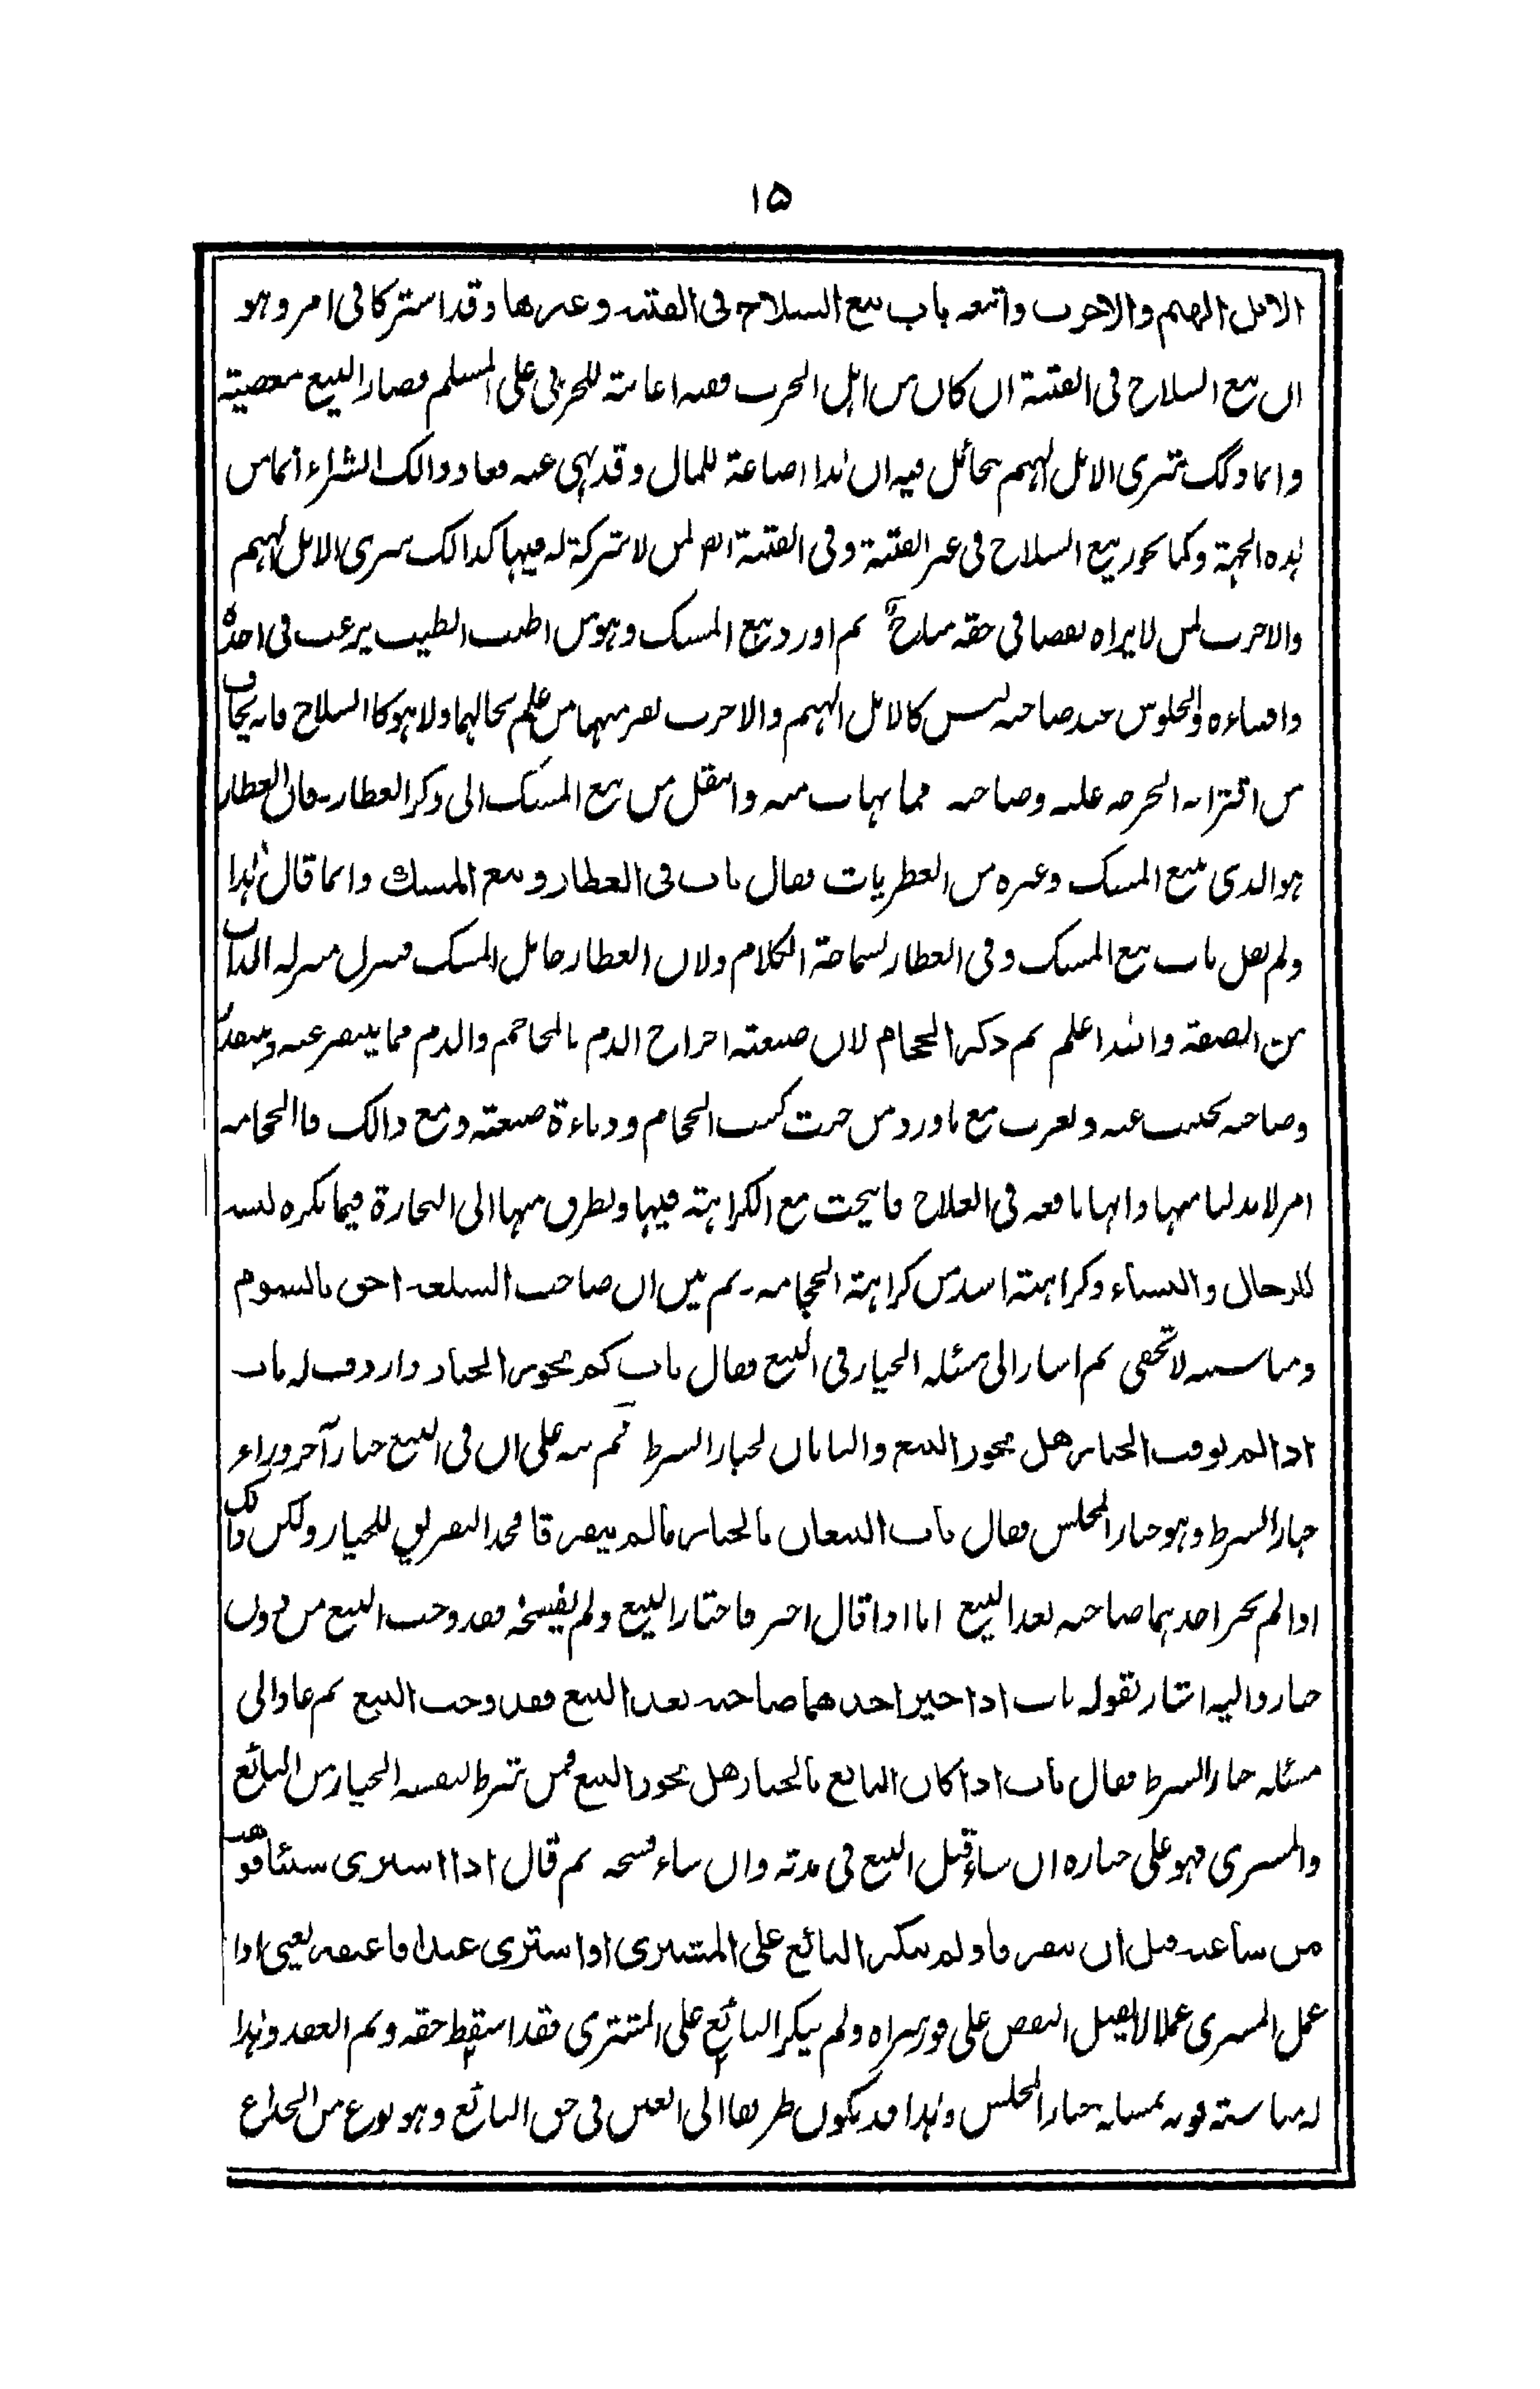 ۱۵
الابل الهيم والاجرب واتبعه باب بيع السلاح فى الفتنه وغيرها وقد اشتركا فى امر وهو
ان بيع السلاح فى الفتنة ان كان من اهل الحرب ففيه اعانة للحربى على المسلم فصار البيع معصية
وانما ذلك شرى الابل الهيم بحائل فيه ان هذا اضاعة للمال وقد نهى عنه فعاد ذالك الشراء اثما من
هذه الجهة وكما يجوز بيع السلاح فى غير الفتنة وفى الفتنة ايضا لمن لا شركة له فيها كذالك شرى الابل الهيم
والاجرب لمن لا يراه نقصا فى حقه مباح ثم اورد بيع المسك وهو من اطيب الطيب يرغب فى اخذه
واقتناءه والجلوس عند صاحبه ليس كالابل الهيم والاجرب يفر منهما من علم بحالهما ولا هو كا السلاح فانه يخاف
من اقترابه الجرحه عليه وصاحبه مما يهاب منه وانتقل من بيع المسك الى ذكر العطار فان العطار
هو الذى يبيع المسك وغيره من العطريات فقال باب فى العطار وبيع المسك وانما قال هذا
ولم يقل باب بيع المسك وفى العطار لسماحة الكلام ولان العطار حامل المسك فنزل منزلة الذات
من الصفة والله اعلم ثم ذكر الحجام لان صنعته اخراج الدم بالمحاجم والدم مما يتنفر عنه ويتقذر
وصاحبه يجتنب عنه ويهرب مع ما ورد من خبث كسب الحجام ودناءة صنعته ومع ذالك فا الحجامه
امر لا بد لنا منها وانها نافعه فى العلاج فابيحت مع الكراهته فيها وتطرق منها الى التجارة فيما يكره لبسه
للرجال والنساء وكراهته اشد من كراهة الحجامه۔ ثم بين ان صاحب السلعه احق بالسوم
ومناسبته لا تخفى ثم اشار الى مسئله الخيار فى البيع فقال باب كم يجوز الخيار واردف له باب
اذا لم يوقت الخيار هل يجوز البيع والبابان لخيار الشرط ثم نبه على ان فى البيع خيار آخر وراء
خيار الشرط وهو خيار المجلس فقال باب البيعان بالخيار ما لم يتفرقا فحد التفريق للخيار ولكن ذلك
اذا لم يخير احدهما صاحبه بعد البيع اما اذا قال اختر فاختار البيع ولم يفسخه فقد وجب البيع من دون
خيار واليه اشار بقوله باب اذا خير احدهما صاحبه بعد البيع فقد وجب البيع ثم عاد الى
مسئله خيار الشرط فقال باب اذا كان البائع بالخيار هل يجوز البيع فمن شرط لنفسه الخيار من البائع
والمشترى فهو على خياره ان شاء قبل البيع فى مدته وان شاء فسخه ثم قال اذا اشترى شيئا فوهب
من ساعته قبل ان يتفرقا ولم ينكر البائع على المشترى او اشترى عبدا فاعتقه يعنى اذا
عمل المشترى عملا لا يقبل النقض على فور شراه ولم ينكر البائع على المشترى فقد اسقط حقه وتم العقد وهذا
له مناسبته قويه بمسئلة خيار المجلس وهذا قد يكون طريقا الى الغبن فى حق البائع وهو نوع من الخداع